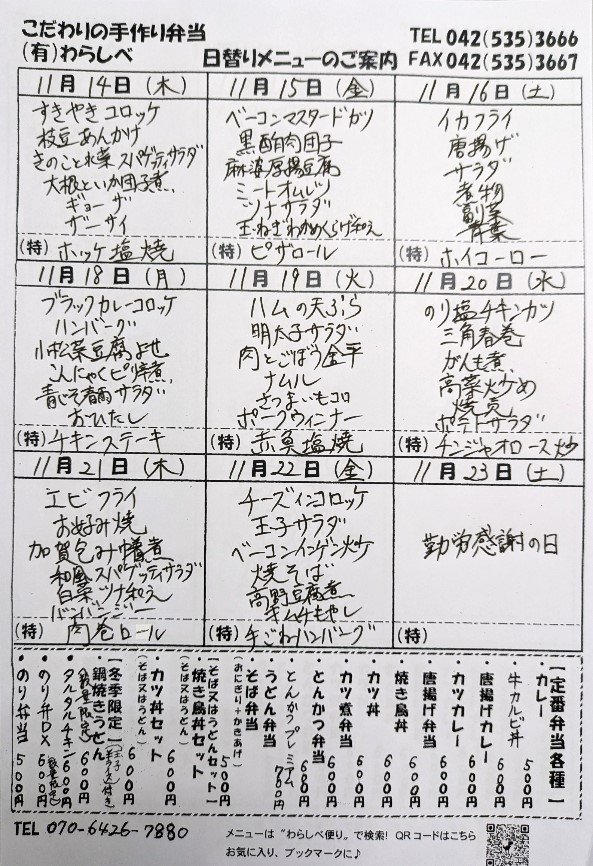 こだわりの手作り弁当
(有)わらしべ
日替りメニューのご案内
TEL 042(535)3666
FAX 042(535)3667
11月14日(木)
すきやきコロッケ
枝豆あんかけ
きのこと水菜スパゲッティサラダ
大根といか団子煮
ギョーザ
ザーサイ
(特)ホッケ塩焼
11月15日(金)
ベーコンマスタードカツ
黒酢肉団子
麻婆厚揚豆腐
ミートオムレツ
ツナサラダ
玉ねぎわかめくらげ和え
(特)ピザロール
11月16日(土)
イカフライ
唐揚げ
サラダ
煮物
副菜
青菜
(特)ホイコーロー
11月18日(月)
ブラックカレーコロッケ
ハンバーグ
小松菜豆腐よせ
こんにゃくピリ辛煮
青じそ春雨サラダ
おひたし
(特)チキンステーキ
11月19日(火)
ハムの天ぷら
明太子サラダ
肉とごぼう金平
ナムル
さつまいもコロ
ポークウィンナー
(特)赤魚塩焼
11月20日(水)
のり塩チキンカツ
三角春巻
がんも煮
高菜炒め
焼売
ポテトサラダ
(特)チンジャオロース炒
11月21日(木)
エビフライ
お好み焼
加賀包み煮
和風スパゲッティサラダ
白菜ツナ和え
バンバンジー
(特)肉巻ロール
11月22日(金)
チーズインコロッケ
玉子サラダ
ベーコンインゲン炒ケ
焼そば
高野豆腐煮
キムチもやし
(特)手ごねハンバーグ
11月23日(土)
勤労感謝の日
(特)
【定番弁当各種】
・カレー 500円
・牛カルビ丼
・唐揚げカレー 600円
・カツカレー 600円
・唐揚げ弁当 600円
・焼き鳥丼 600円
・カツ丼 600円
・カツ煮弁当 600円
・とんかつ弁当 600円
・とんかつプレミアム 700円
・うどん弁当
・そば弁当
(おにぎり+かきあげ) 500円
【そば又はうどんセット】
・焼き鳥丼セット 600円
(そば又はうどん)
・カツ丼セット 600円
(そば又はうどん)
【冬季限定】
・鍋焼きうどん 600円
(数量限定)
・タルタルチキン 600円
・のり弁DX 600円
(数量限定)
・のり弁当 500円
TEL 070-6426-7880
メニューは“わらしべ便り”で検索! QRコードはこちら
お気に入り、ブックマークに♪